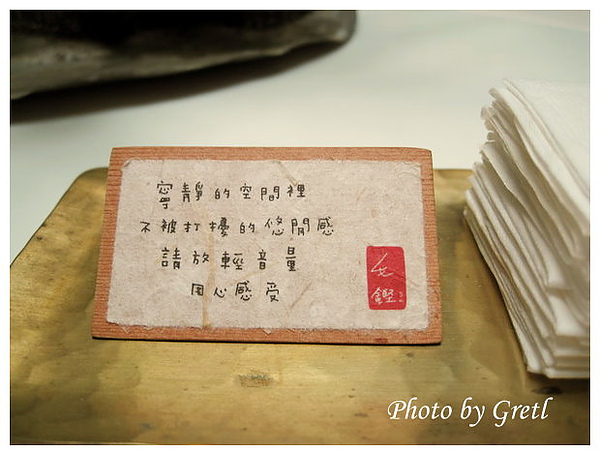 寧靜的空間裡
不被打擾的悠閒感
請放輕音量
用心感受
Photo by Gretl